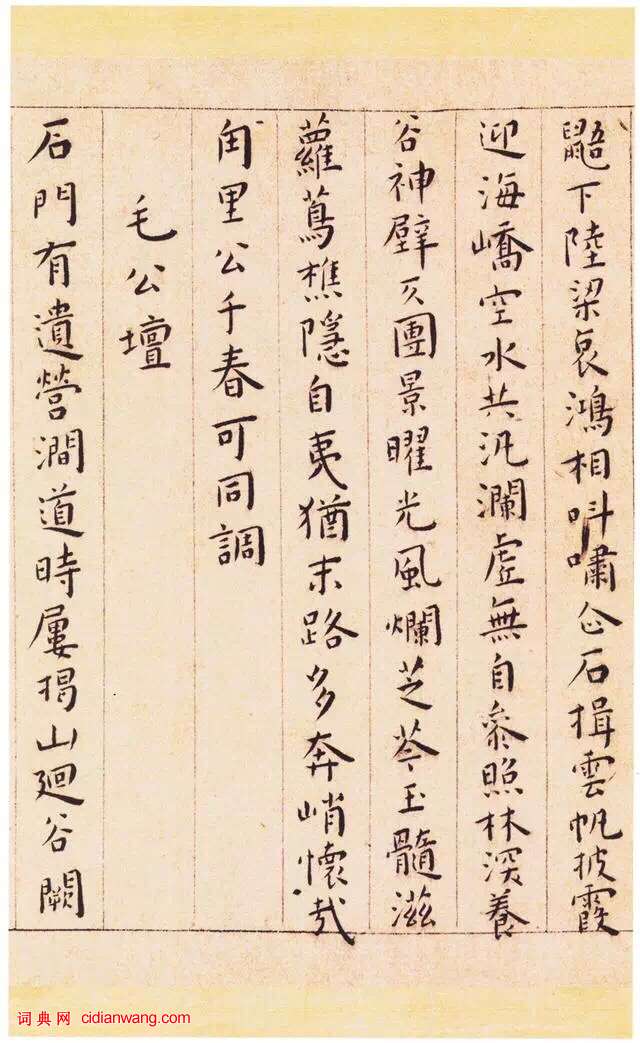 鼯下陸梁哀鴻相叫嘯仚石揖雲帆披霞
迎海嶠空水共汎瀾虛無自叅照林深養
谷神壁仄團景曜光風爛芝苓玉髓滋
蘿蔦樵隱自夷猶末路多奔峭懷哉
甪里公千春可同調
毛公壇
石門有遺營澗道時屢揭山廻谷闕
词典网 cidianwang.com